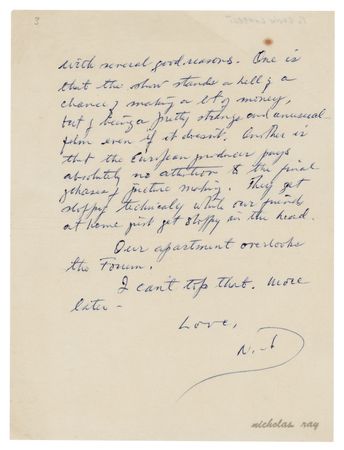 3
with several good reasons. One is
that the show stands a hell of a
chance of making a lot of money,
but of being a pretty strange and unusual
film even if it doesn't. Another is
that the European producer pays
absolutely no attention to the final
phases of picture making. They get
sloppy technically while our friends
at home just get sloppy in the head.
Our apartment overlooks
the Forum.
I can't top that. More
later -
Love,
nicholas ray